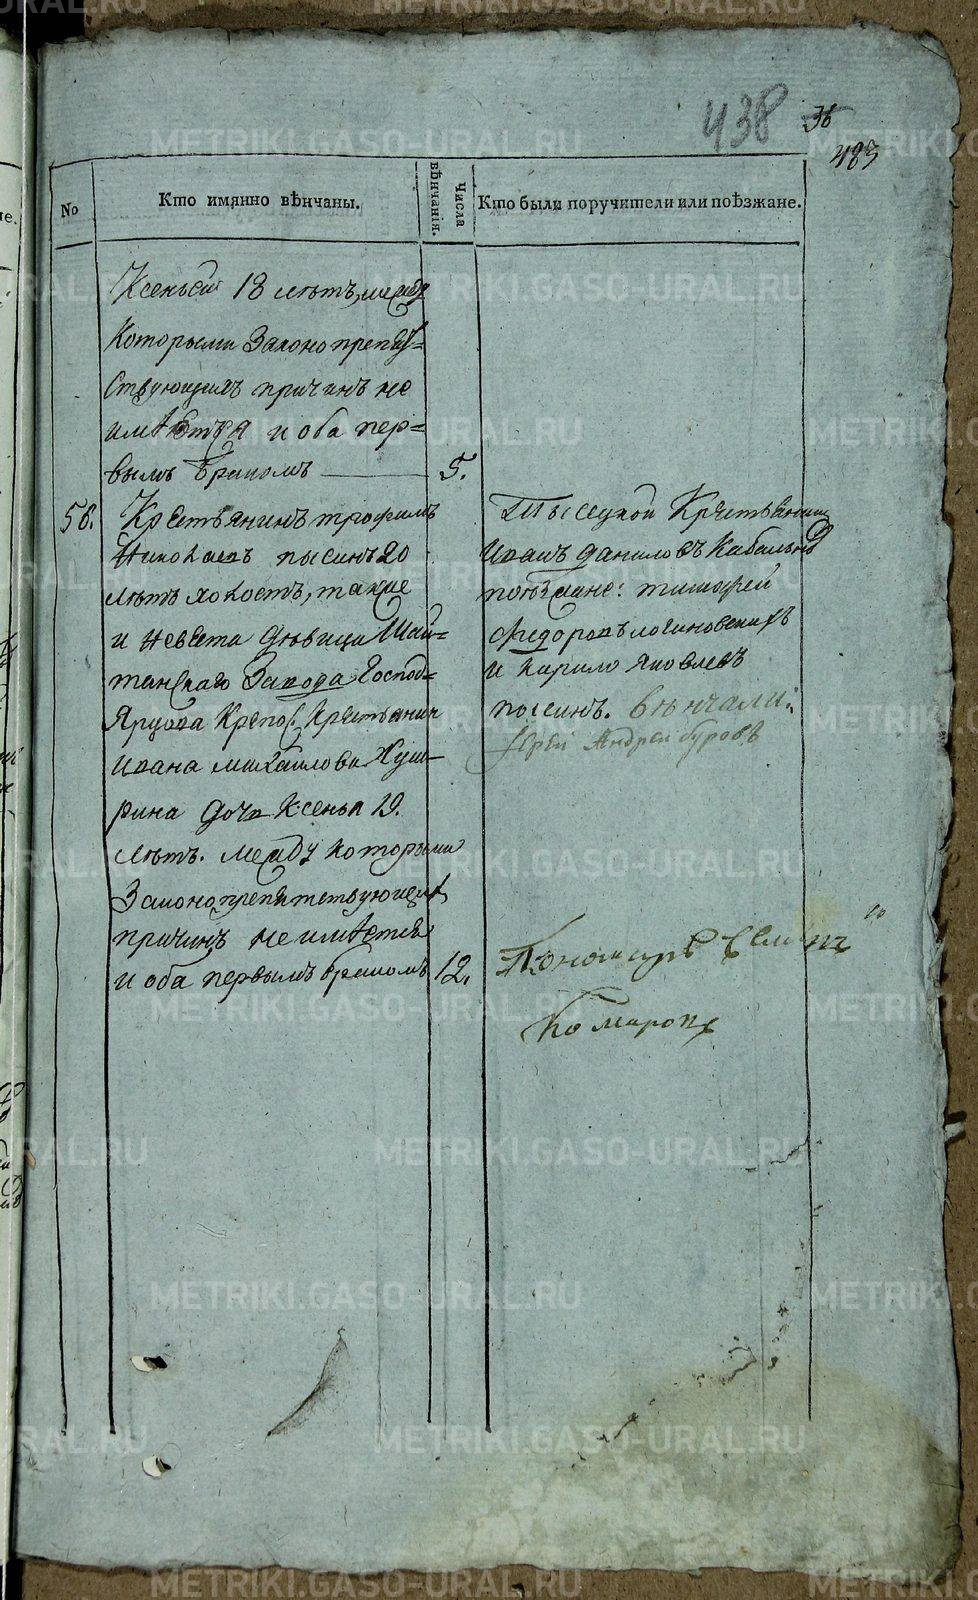 438 36
483
No
Кто имянно вѣнчаны.
Числа вѣнчанія.
Кто были поручители или поѣзжане.
Ксеньей 18 лѣтъ, между
которыми Законо препят=
ствующихъ причинъ не
имѣется и оба пер=
вымъ бракомъ 5.
56. Крестьянинъ трофимъ
Николаевъ 20
лѣтъ холостъ, также
и невеста девица Шай=
танскаго Завода Господ=
Ярцова Крепос. Крестьянин
ивана михайлова
дочь Ксенья 19.
лѣтъ. между которыми
Законопрепятствующихъ
причинъ не имѣется
и оба первымъ бракомъ 12.
Тысецкой Крестьянинъ
иванъ даниловъ
поѣзжане: тимофей
Федоровъ
и кирило яковлевъ
венчали:
Иерей Андрей Буровъ
Пономарь
Комаровъ
METRIKI.GASO-URAL.RU